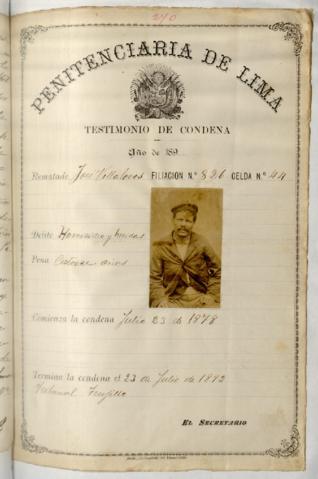 210
PENITENCIARIA DE LIMA
TESTIMONIO DE CONDENA
Año de 189
Rematado José Villalobos FILIACION N.º 826 CELDA N.º 44
Delito Homicidio y heridas
Pena Catorce años
Comienza la condena Julio 23 de 1878
Termina la condena el 23 de Julio de 1892
Tribunal Trujillo
EL SECRETARIO